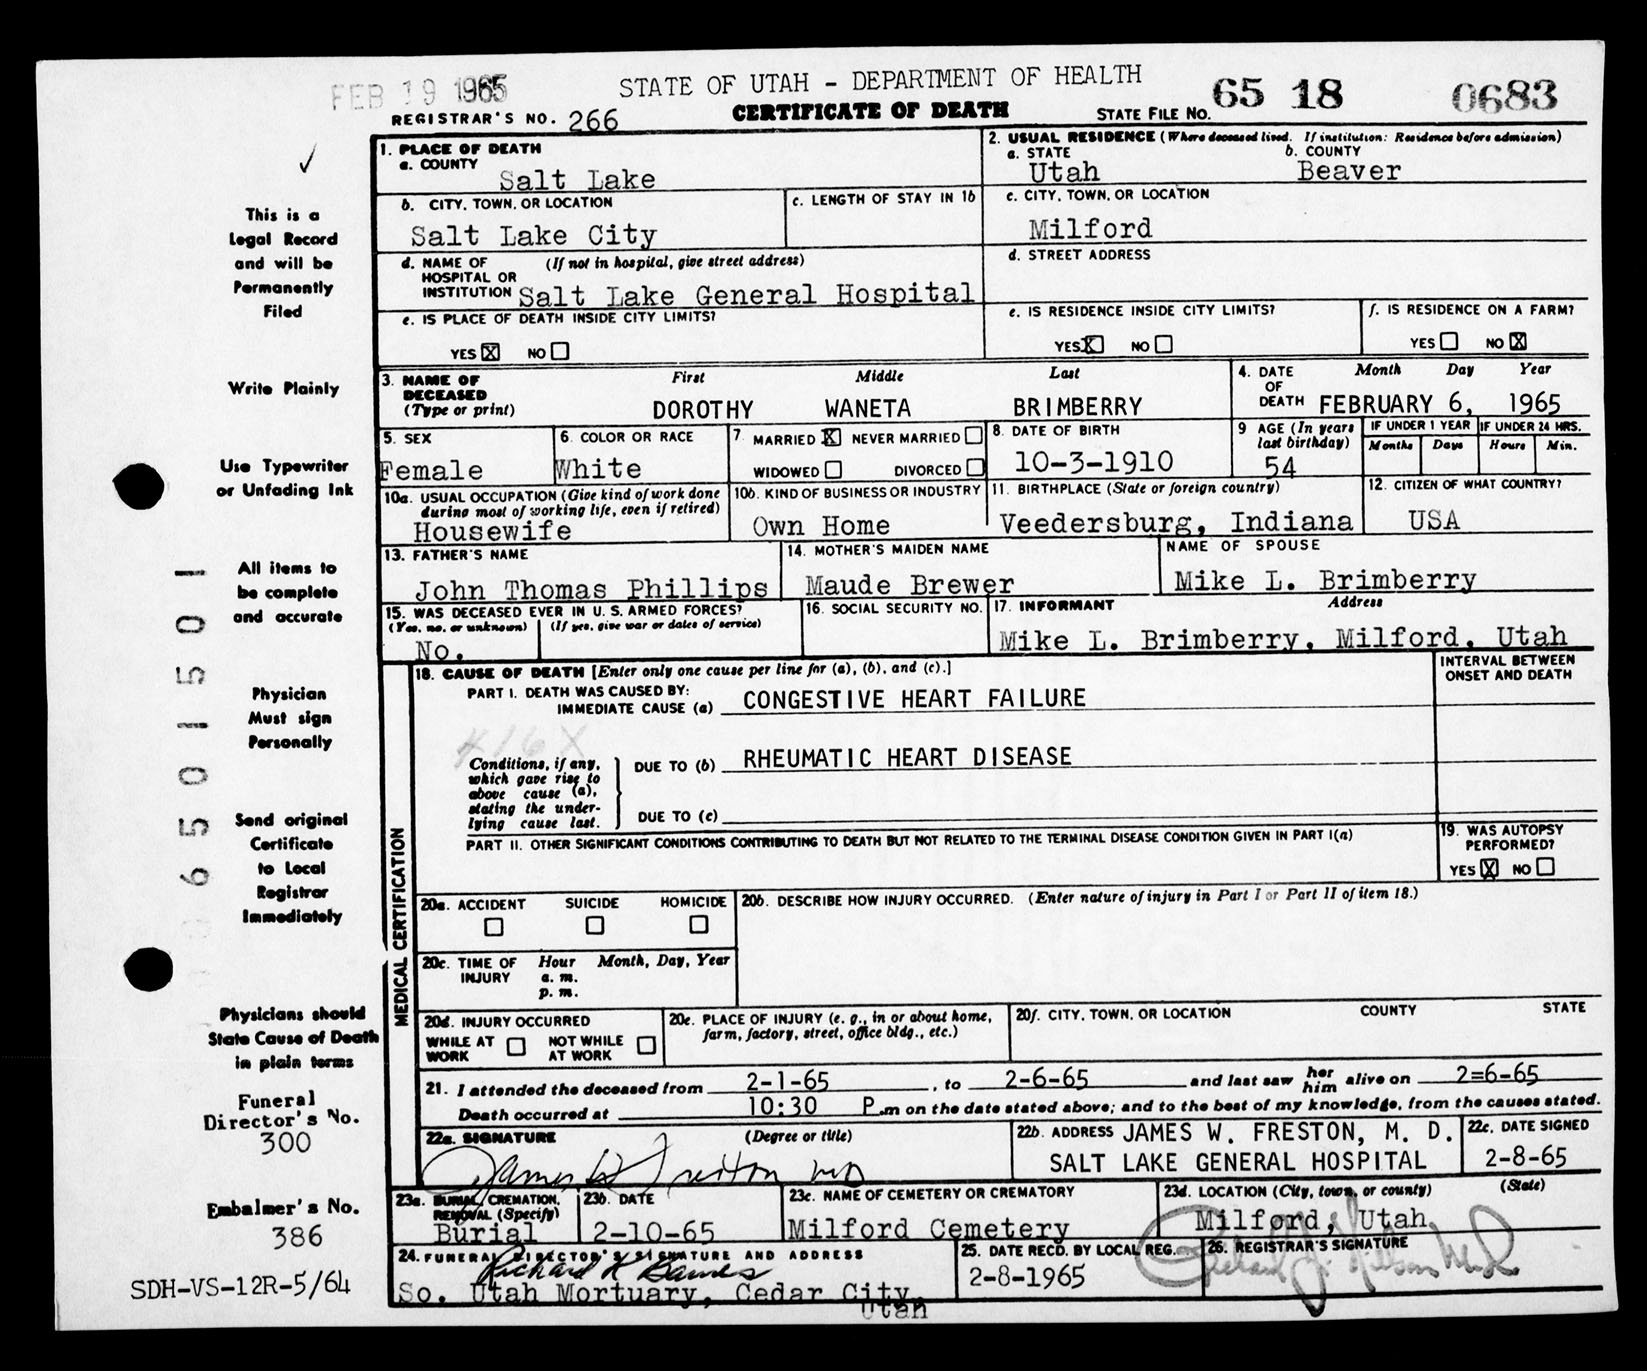 FEB 19 1965
STATE OF UTAH - DEPARTMENT OF HEALTH
CERTIFICATE OF DEATH
REGISTRAR'S NO. 266
STATE FILE NO. 65 18 0683
This is a
Legal Record
and will be
Permanently
Filed
Write Plainly
Use Typewriter
or Unfading Ink
All items to
be complete
and accurate
Physician
Must sign
Personally
Send original
Certificate
to Local
Registrar
Immediately
Physicians should
State Cause of Death
in plain terms
Funeral
Director's No.
300
Embalmer's No.
386
SDH-VS-12R-5/64
6501501
1. PLACE OF DEATH
a. COUNTY
Salt Lake
2. USUAL RESIDENCE (Where deceased lived. If institution: Residence before admission)
a. STATE b. COUNTY
Utah Beaver
b. CITY, TOWN, OR LOCATION
Salt Lake City
c. LENGTH OF STAY IN 1b
c. CITY, TOWN, OR LOCATION
Milford
d. NAME OF (If not in hospital, give street address)
HOSPITAL OR
INSTITUTION Salt Lake General Hospital
d. STREET ADDRESS
e. IS PLACE OF DEATH INSIDE CITY LIMITS?
YES X NO
e. IS RESIDENCE INSIDE CITY LIMITS?
YES X NO
f. IS RESIDENCE ON A FARM?
YES NO X
3. NAME OF DECEASED (Type or print)
First Middle Last
DOROTHY WANETA BRIMBERRY
4. DATE OF DEATH
Month Day Year
FEBRUARY 6, 1965
5. SEX
Female
6. COLOR OR RACE
White
7. MARRIED X NEVER MARRIED
WIDOWED DIVORCED
8. DATE OF BIRTH
10-3-1910
9 AGE (In years last birthday)
54
IF UNDER 1 YEAR
Months Days
IF UNDER 24 HRS.
Hours Min.
10a. USUAL OCCUPATION (Give kind of work done
during most of working life, even if retired)
Housewife
10b. KIND OF BUSINESS OR INDUSTRY
Own Home
11. BIRTHPLACE (State or foreign country)
Veedersburg, Indiana
12. CITIZEN OF WHAT COUNTRY?
USA
13. FATHER'S NAME
John Thomas Phillips
14. MOTHER'S MAIDEN NAME
Maude Brewer
NAME OF SPOUSE
Mike L. Brimberry
15. WAS DECEASED EVER IN U. S. ARMED FORCES?
(Yes, no, or unknown) (If yes, give war or dates of service)
No.
16. SOCIAL SECURITY NO.
17. INFORMANT Address
Mike L. Brimberry, Milford, Utah
MEDICAL CERTIFICATION
18. CAUSE OF DEATH [Enter only one cause per line for (a), (b), and (c).]
INTERVAL BETWEEN
ONSET AND DEATH
PART I. DEATH WAS CAUSED BY:
IMMEDIATE CAUSE (a) CONGESTIVE HEART FAILURE
416X
Conditions, if any,
which gave rise to
above cause (a),
stating the under-
lying cause last.
DUE TO (b) RHEUMATIC HEART DISEASE
DUE TO (c)
PART II. OTHER SIGNIFICANT CONDITIONS CONTRIBUTING TO DEATH BUT NOT RELATED TO THE TERMINAL DISEASE CONDITION GIVEN IN PART I(a)
19. WAS AUTOPSY
PERFORMED?
YES X NO
20a. ACCIDENT SUICIDE HOMICIDE
20b. DESCRIBE HOW INJURY OCCURRED. (Enter nature of injury in Part I or Part II of item 18.)
20c. TIME OF INJURY
Hour Month, Day, Year
a. m.
p. m.
20d. INJURY OCCURRED
WHILE AT WORK NOT WHILE AT WORK
20e. PLACE OF INJURY (e. g., in or about home,
farm, factory, street, office bldg., etc.)
20f. CITY, TOWN, OR LOCATION COUNTY STATE
21. I attended the deceased from 2-1-65, to 2-6-65 and last saw her him alive on 2=6-65
Death occurred at 10:30 P.m on the date stated above; and to the best of my knowledge, from the causes stated.
22a. SIGNATURE (Degree or title)
James W Freston MD
22b. ADDRESS JAMES W. FRESTON, M. D.
SALT LAKE GENERAL HOSPITAL
22c. DATE SIGNED
2-8-65
23a. BURIAL, CREMATION,
REMOVAL (Specify)
Burial
23b. DATE
2-10-65
23c. NAME OF CEMETERY OR CREMATORY
Milford Cemetery
23d. LOCATION (City, town, or county) (State)
Milford, Utah
24. FUNERAL DIRECTOR'S SIGNATURE AND ADDRESS
Richard K Barnes
So. Utah Mortuary, Cedar City,
Utah
25. DATE RECD. BY LOCAL REG.
2-8-1965
26. REGISTRAR'S SIGNATURE